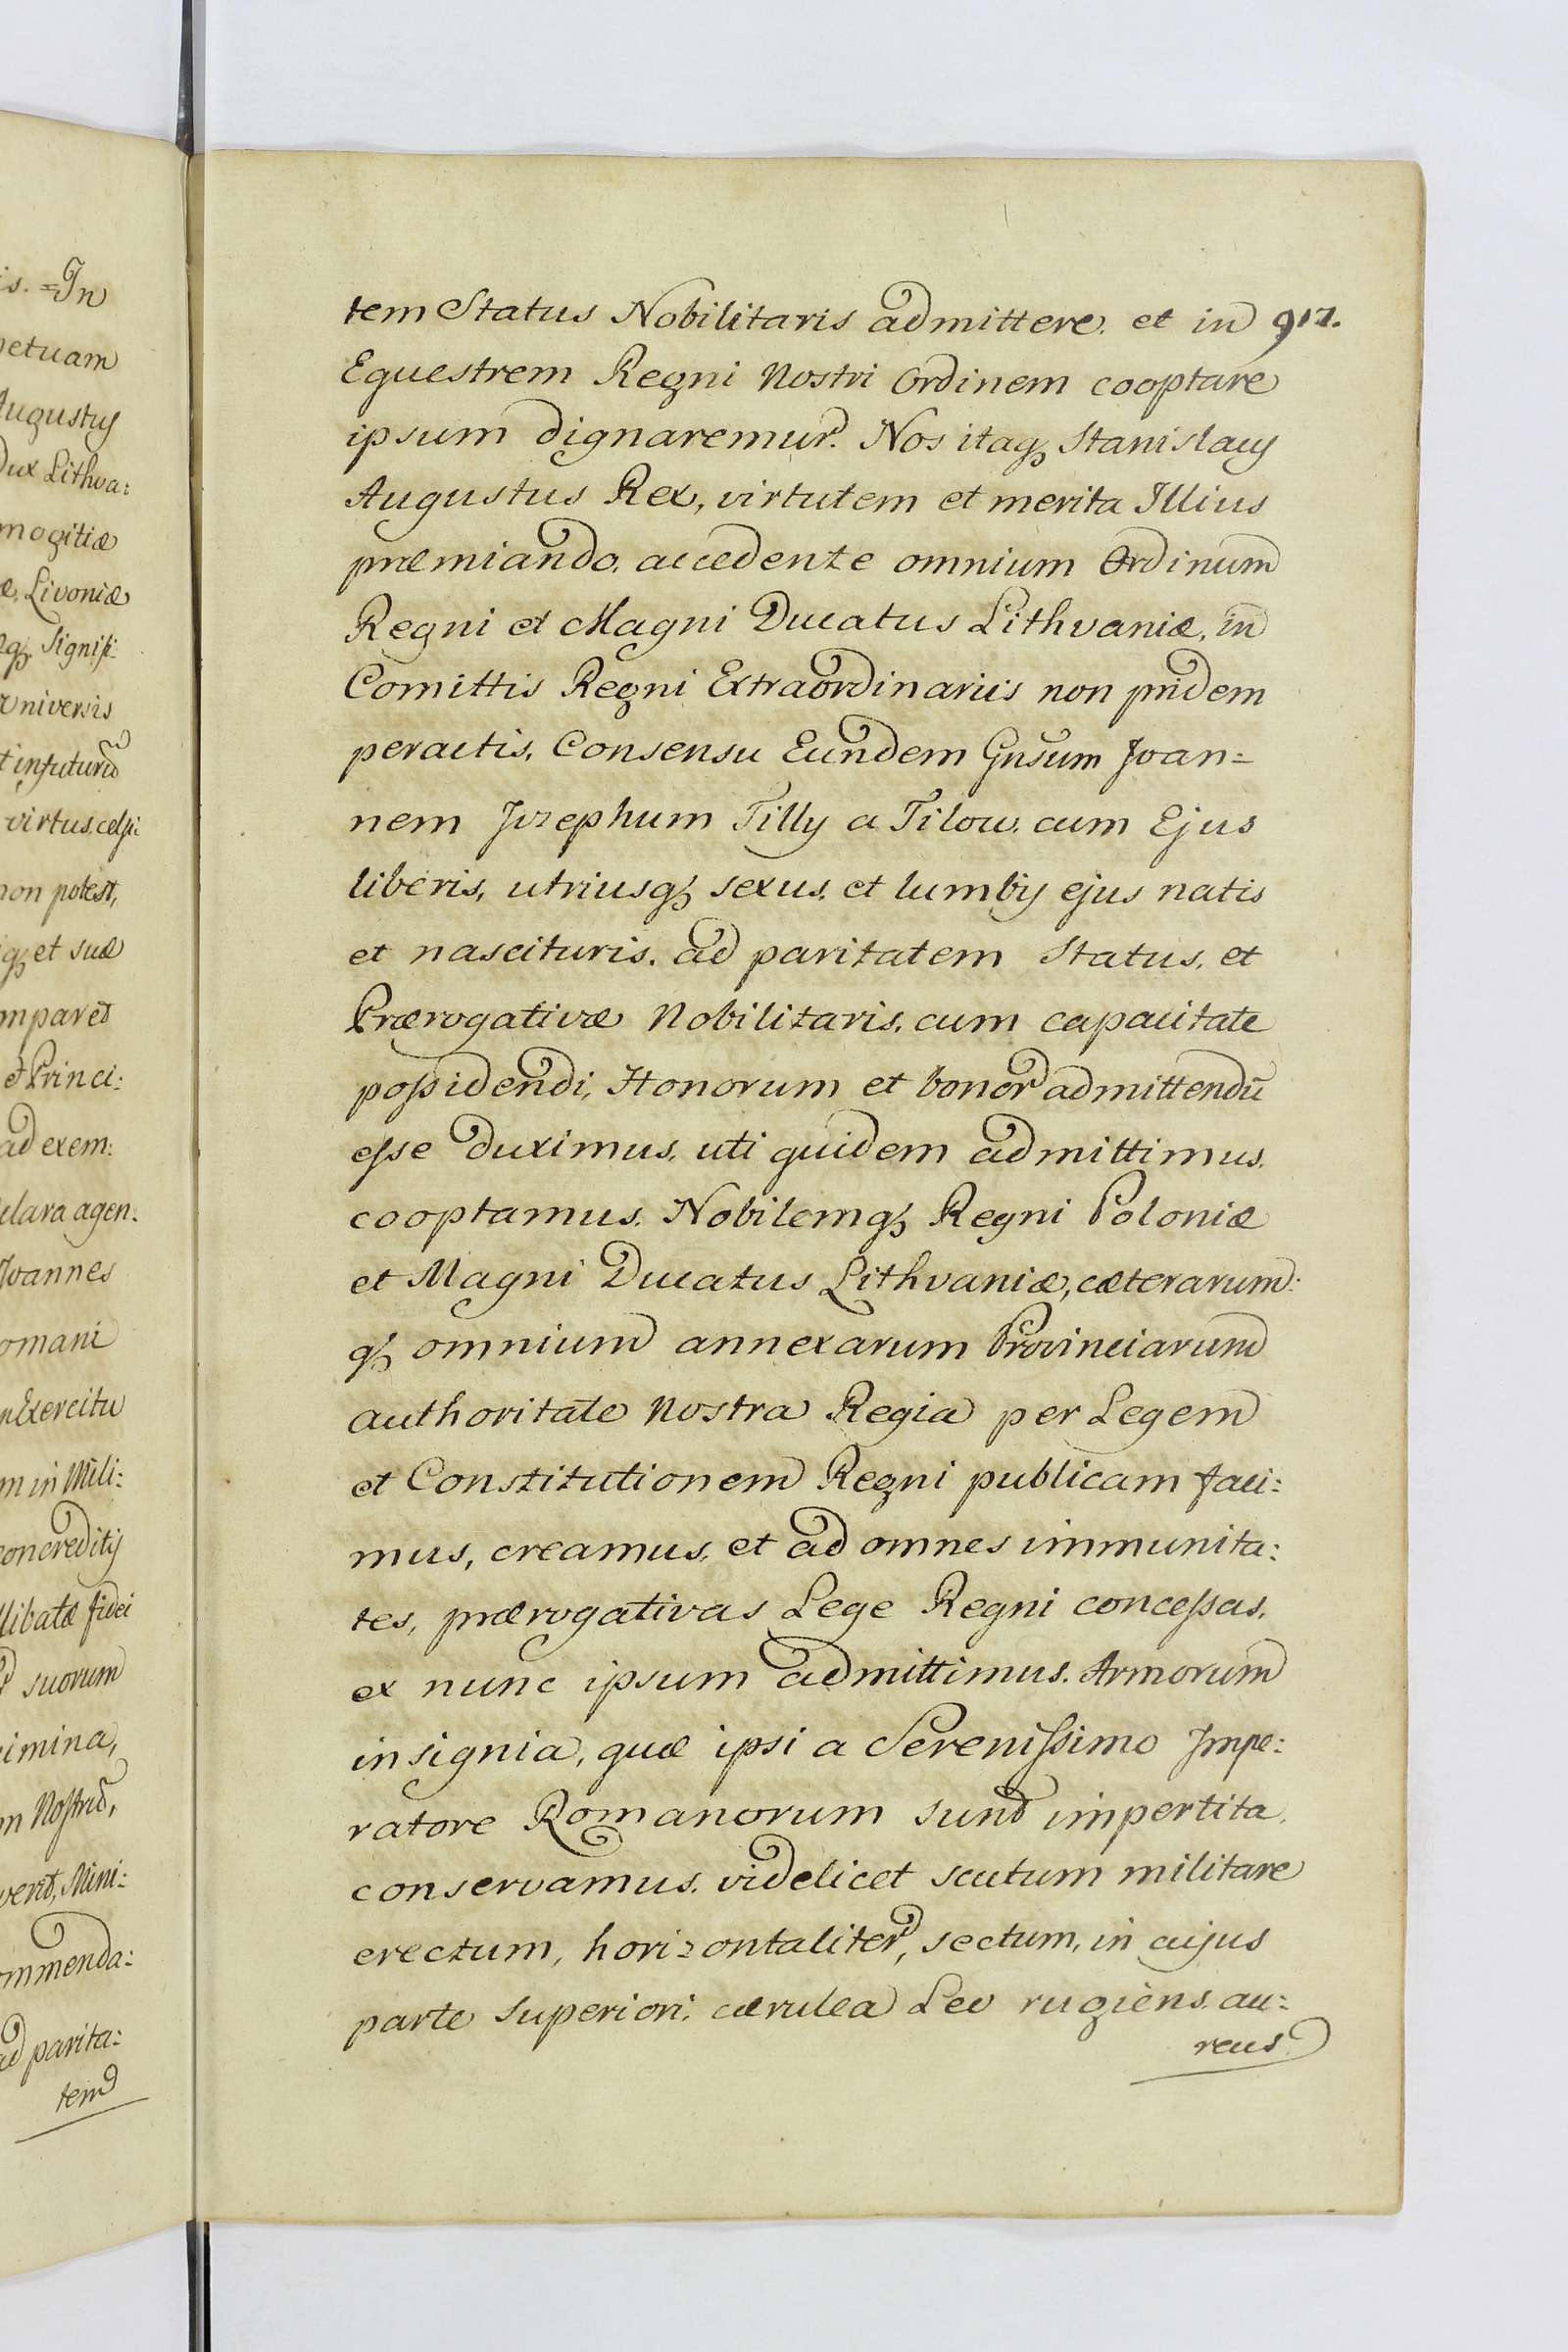 is. = In
petuam
Augustus
Dux Lithva:
mogitiæ
æ, Livoniæ
mq₃ Signifi:
universis
t in futurū
virtus, celsi:
non potest,
iq₃ et suæ
mparet
et Princi:
ad exem:
clara agen:
Joannes
omani
n Exercitu
m in Mili:
concreditis
llibatæ fidei
suorum
imina,
m Nostrū,
verit, Mini:
ommenda:
ad parita:
tem
917.
tem Status Nobilitaris admittere, et in
Equestrem Regni Nostri Ordinem cooptare
ipsum dignaremur. Nos itaq₃ Stanislaus
Augustus Rex, virtutem et merita Illius
præmiando, accedente omnium Ordinum
Regni et Magni Ducatus Lithvaniæ, in
Comittis Regni Extraordinariis non pridem
peractis, Consensu Eundem Gnsum Joan=
nem Jozephum Tilly a Tilow, cum Ejus
liberis, utriusq₃ sexus, et lumbis ejus natis
et nascituris, ad paritatem Status, et
Prærogativæ Nobilitaris, cum capacitate
possidendi, Honorum et bonor admittendū
esse duximus, uti quidem admittimus,
cooptamus, Nobilemq₃ Regni Poloniæ
et Magni Ducatus Lithvaniæ, cæterarum:
q₃ omnium annexarum Provinciarum
authoritate Nostra Regia per Legem
et Constitutionem Regni publicam faci:
mus, creamus, et ad omnes immunita:
tes, prærogativas Lege Regni concessas,
ex nunc ipsum admittimus. Armorum
insignia, quæ ipsi a Serenissimo Impe:
ratore Romanorum sunt impertita,
conservamus, videlicet scutum militare
erectum, horizontaliter, sectum, in cujus
parte superiori, cærulea Leo rugiens, au:
reus